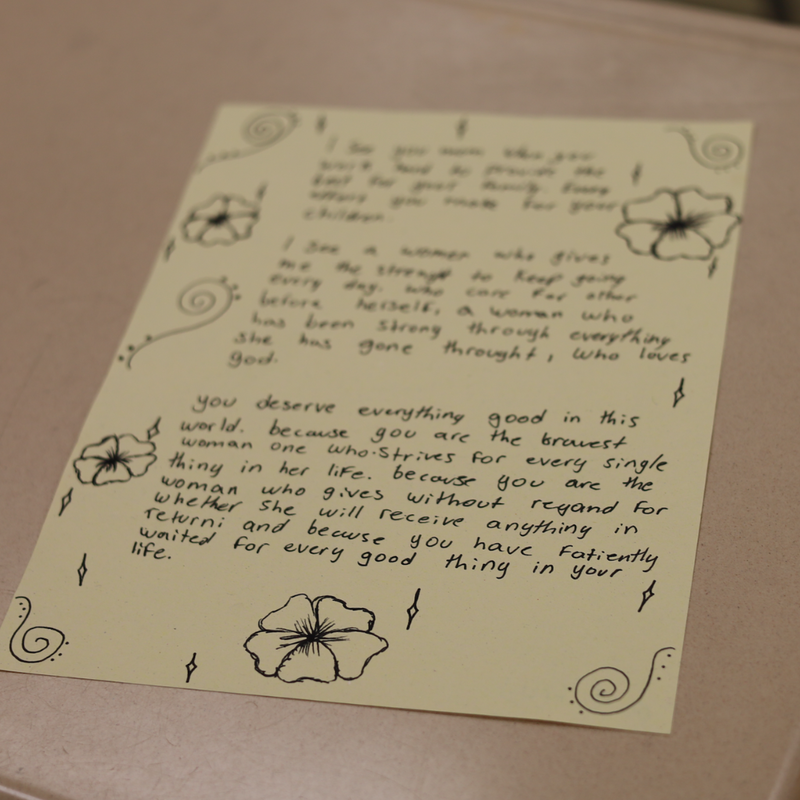 I see you mom when you
work hard to provide the
best for your family. Every
effort you make for your
children.
I see a woman who gives
me the strenght to keep going
every day. who care for other
before herself, a woman who
has been strong through everything
she has gone throught, who loves
god.
you deserve everything good in this
world. because you are the bravest
woman one who strives for every single
thing in her life. because you are the
woman who gives without regand for
whether she will receive anything in
return; and becuse you have Fatiently
waited for every good thing in your
life.